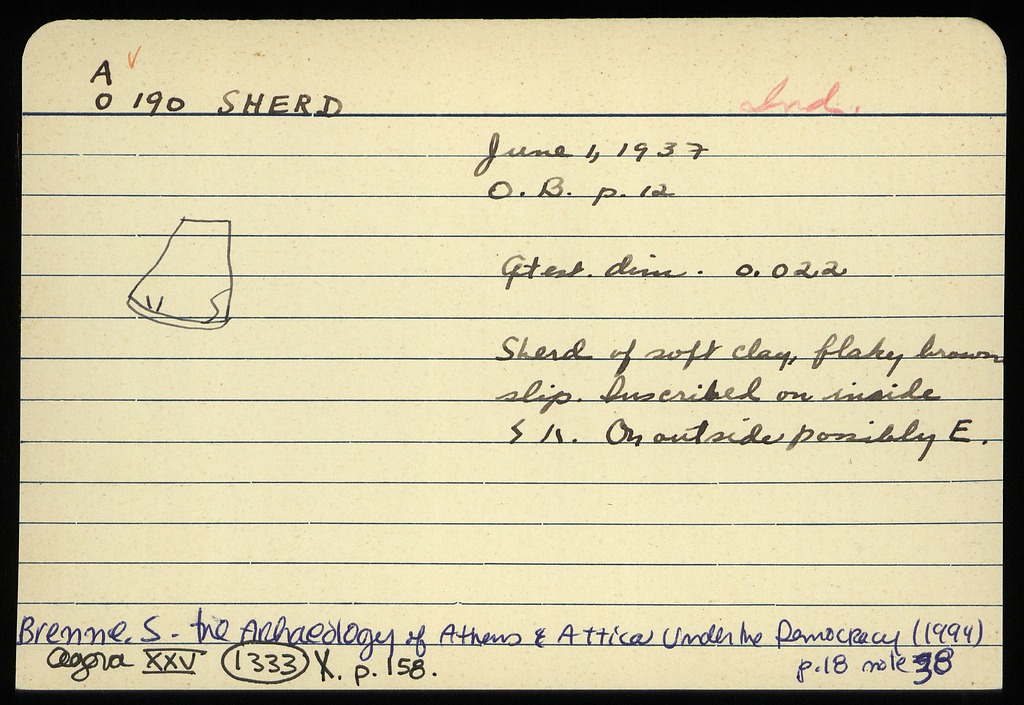 A
O 190 SHERD
Ind.
June 1, 1937
O.B. p. 12
Gtest. dim. 0.022
Sherd of soft clay, flaky brown
slip. Inscribed on inside
On outside possibly E.
Brenne, S. - The Archaeology of Athens & Attica Under the Democracy (1994)
p.18 note 38
Agora XXV 1333 X. p. 158.